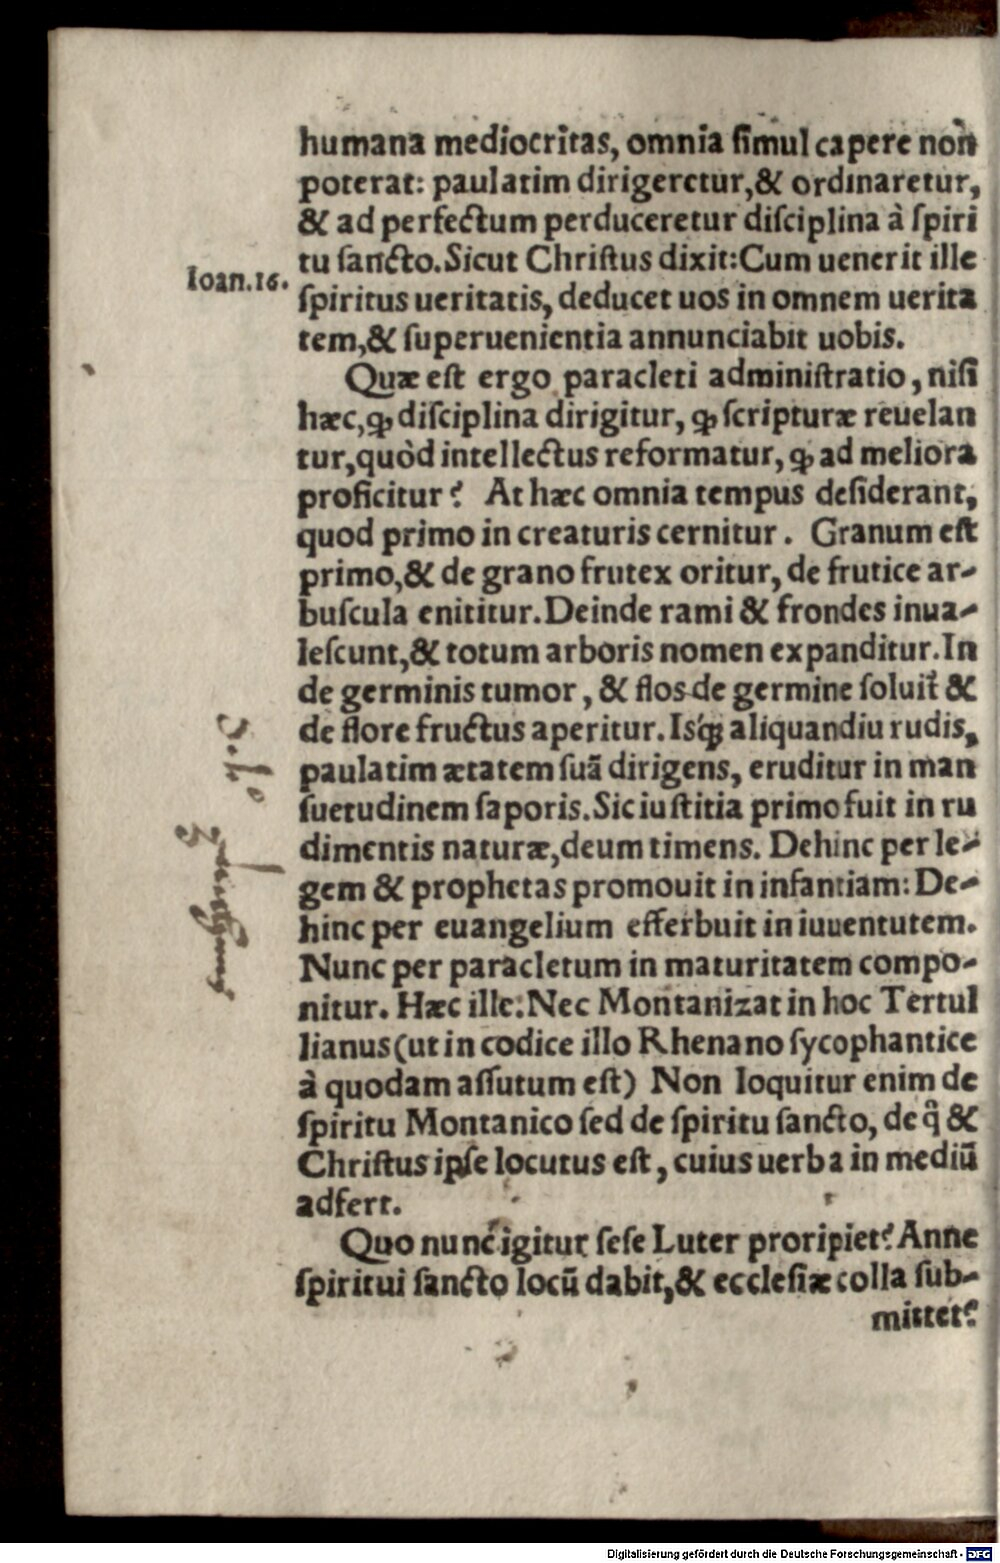 humana mediocritas, omnia ſimul capere non
poterat: paulatim dirigeretur,& ordinaretur,
& ad perfectum perduceretur diſciplina à ſpiri
tu ſancto. Sicut Chriſtus dixit: Cum uenerit ille
Ioan.16.
ſpiritus ueritatis, deducet uos in omnem uerita
tem,& ſuperuenientia annunciabit uobis.
Quæ eſt ergo paracleti adminiſtratio, niſi
hæc,ꝙ diſciplina dirigitur, ꝙ ſcripturæ reuelan
tur,quòd intellectus reformatur, ꝙ ad meliora
proficitur? At hæc omnia tempus deſiderant,
quod primo in creaturis cernitur. Granum eſt
primo,& de grano frutex oritur, de frutice ar-
buſcula enititur. Deinde rami & frondes inua-
leſcunt,& totum arboris nomen expanditur. In
de germinis tumor, & flos de germine ſoluit̃ &
de flore fructus aperitur. Iſq́ꝫ aliquandiu rudis,
paulatim ætatem ſuã dirigens, eruditur in man
ſuetudinem ſaporis. Sic iuſtitia primo fuit in ru
dimentis naturæ,deum timens. Dehinc per le-
gem & prophetas promouit in infantiam: De-
hinc per euangelium efferbuit in iuuentutem.
Nunc per paracletum in maturitatem compo-
nitur. Hæc ille: Nec Montanizat in hoc Tertul
lianus (ut in codice illo Rhenano ſycophantice
à quodam aſſutum eſt) Non loquitur enim de
ſpiritu Montanico ſed de ſpiritu ſancto, de q̃ &
Chriſtus ipſe locutus eſt, cuius uerba in mediũ
adfert.
Quo nunc igitur ſeſe Luter proripiet? Anne
ſpiritui ſancto locũ dabit,& eccleſiæ colla ſub-
mittet?
Digitalisierung gefördert durch die Deutsche Forschungsgemeinschaft - DFG